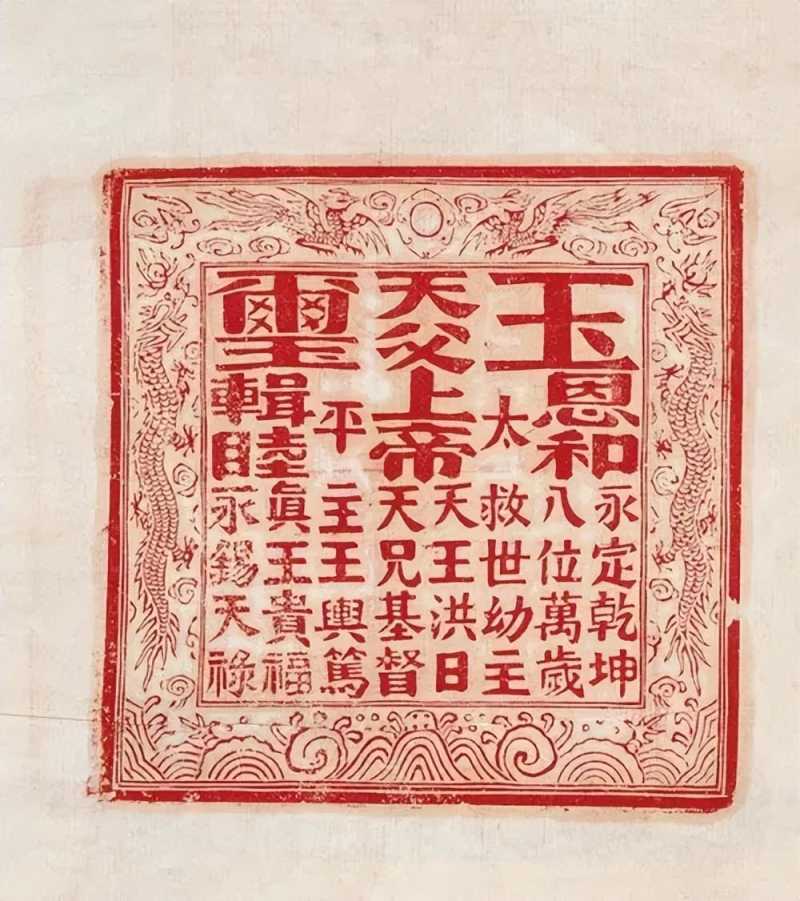 玉
恩和
永定乾坤
八位萬歲
太
救世幼主
天王洪日
天父上帝
天兄基督
平
主王輿篤
璽
輯睦
眞王貴福
永錫天祿